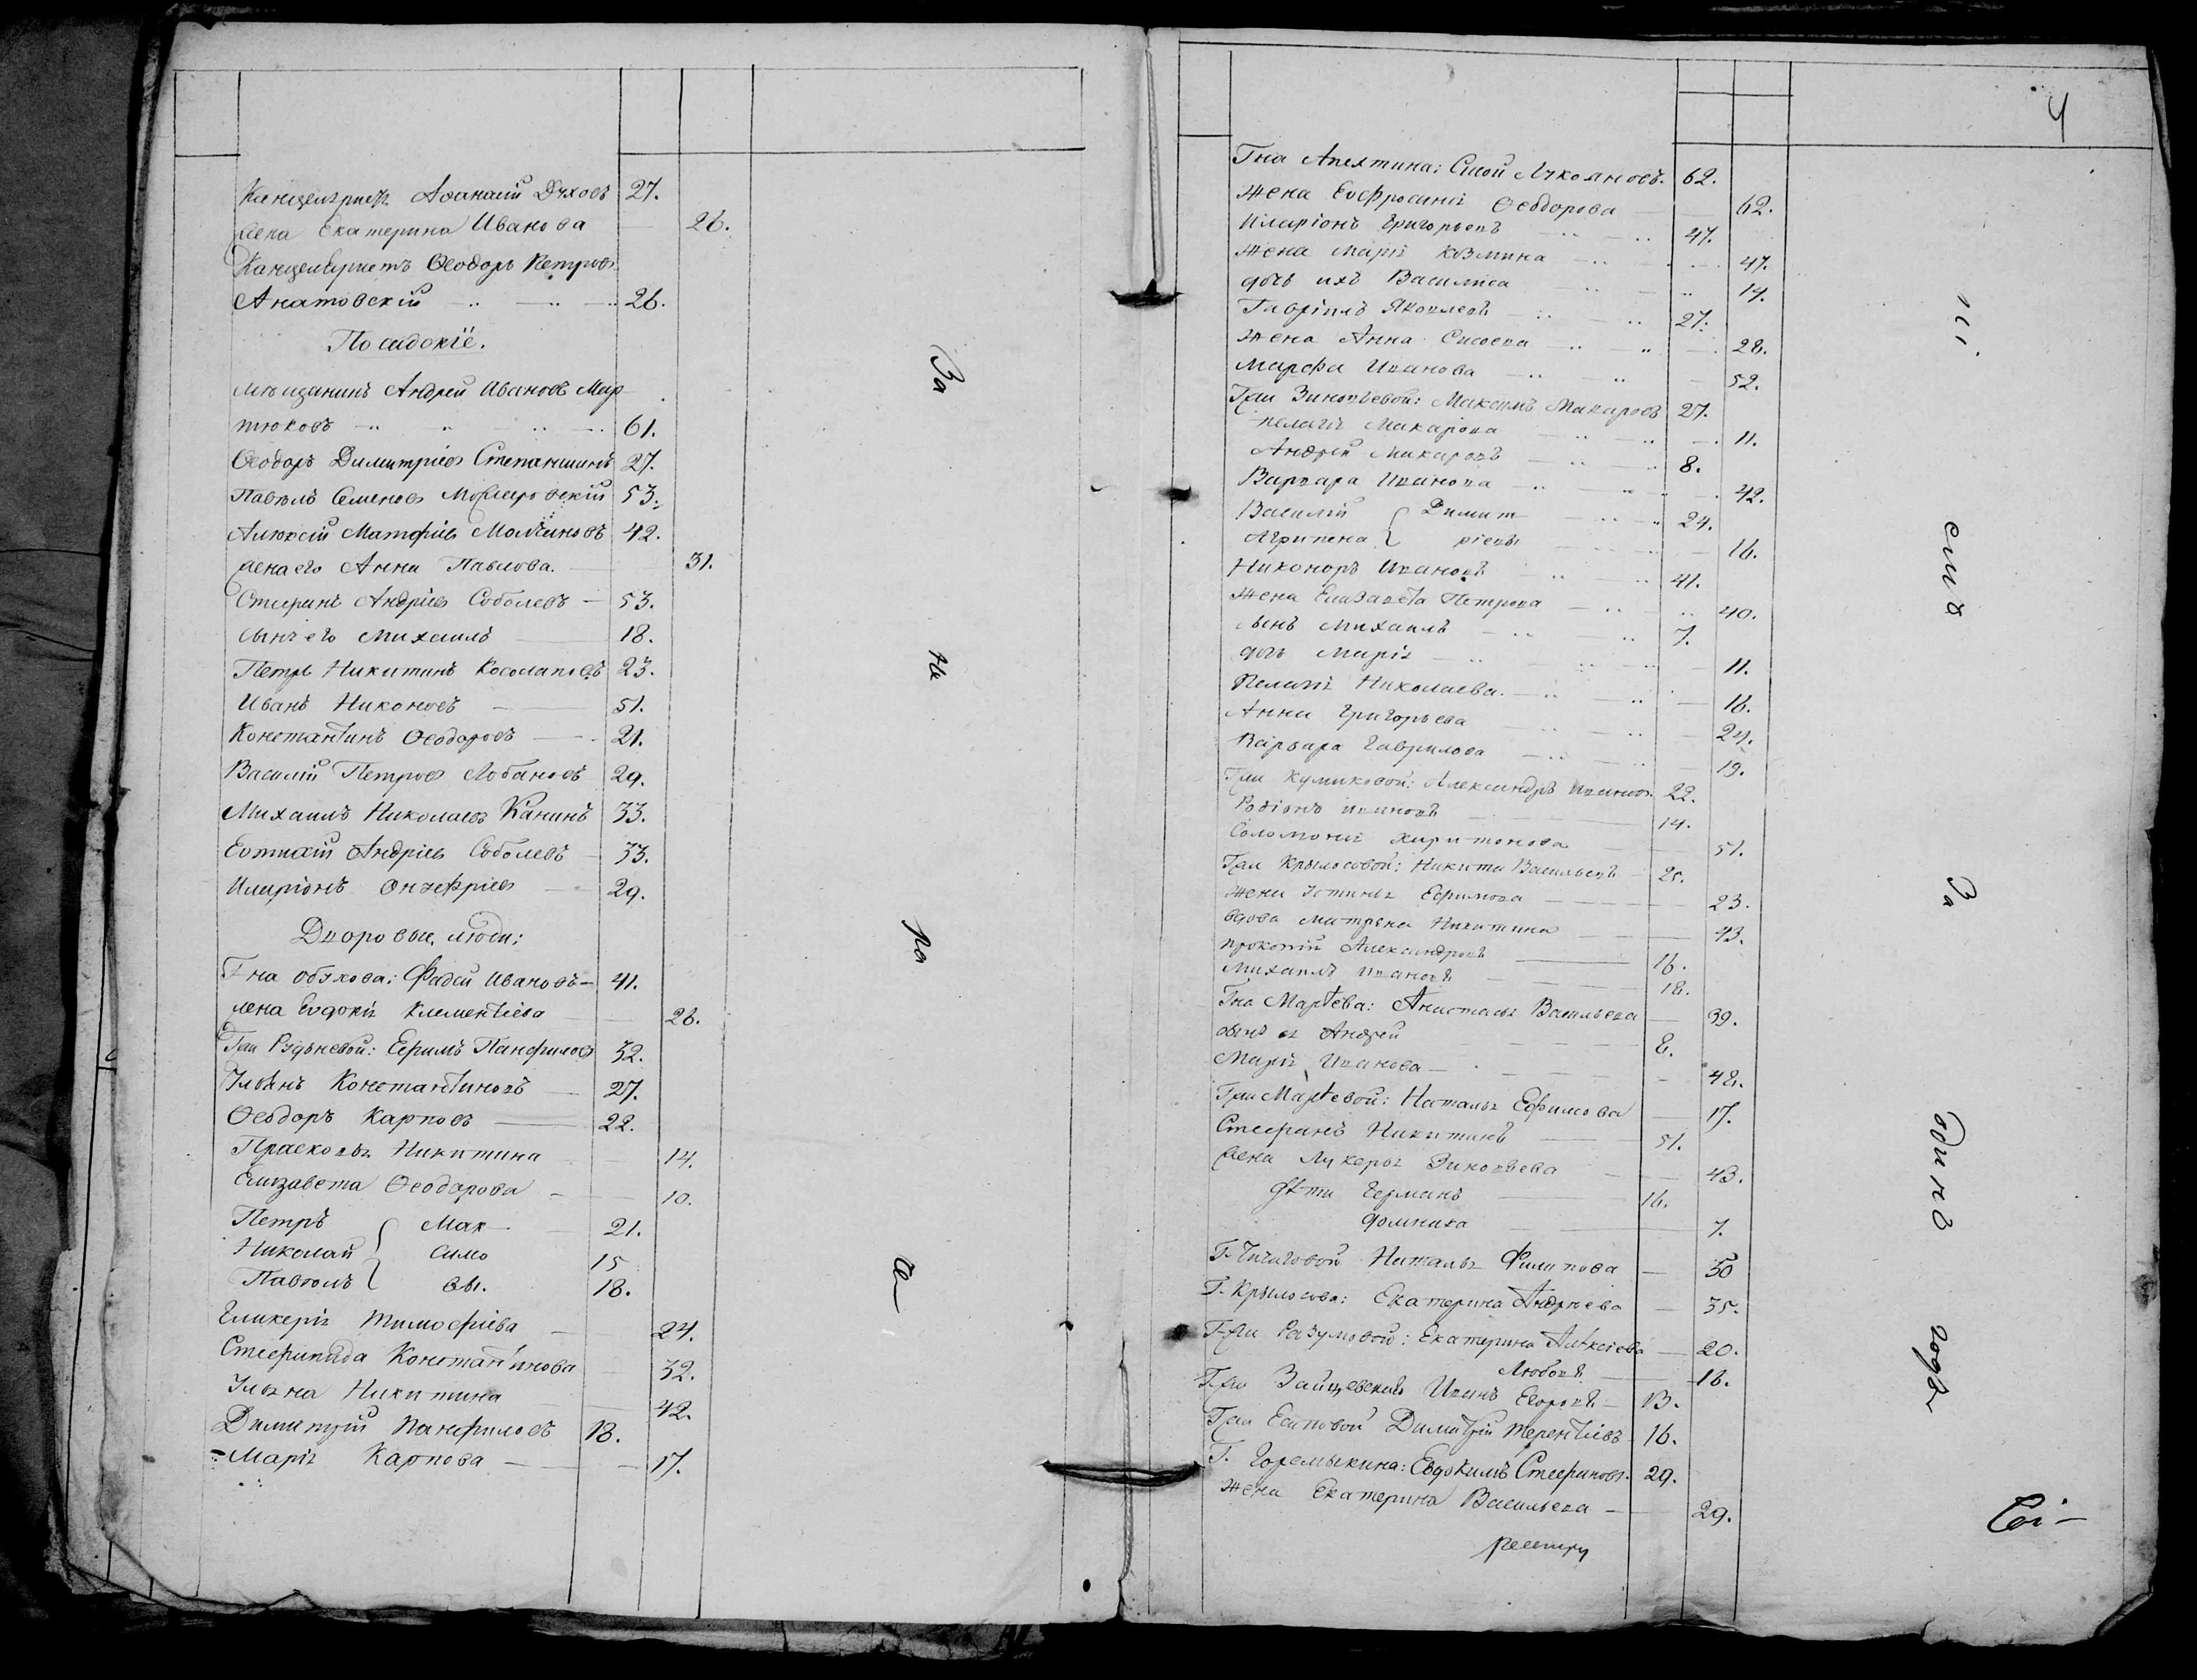 Канцеляристъ Аѳанасій Духовъ 27.
жена Екатерина Иванова 26.
Канцеляристъ Ѳеодоръ Петровъ
Анатовскій 26.
Посадскіе.
мѣщанинъ Андрей Ивановъ Мар
тюковъ 61.
Ѳеодоръ Димитріевъ Степаншинъ 27.
Павелъ Семеновъ 53.
Алексій Матфіевъ 42.
жена его Анна Павлова. 31.
Стефанъ Андріевъ Соболевъ 53.
сынъ его Михаилъ 18.
Петръ Никитинъ Косолаповъ 23.
Иванъ Никоновъ 51.
Константинъ Ѳеодоровъ 21.
Василій Петровъ Лобановъ 29.
Михаилъ Николаевъ Канинъ 33.
Евтихій Андріевъ Соболевъ 33.
Иларіонъ Онуфріевъ 29.
Дворовые люди:
Гна Обухова: Фадей Ивановъ 41.
жена Евдокія Климентіева 26.
Гжи Рудневой: Ефимъ Панфиловъ 32.
Ульянъ Константиновъ 27.
Ѳеодоръ Карповъ 22.
Прасковья Никитина 14.
Елизавета Ѳеодорова 10.
Петръ Мак 21.
Николай симо 15
Павелъ вы. 18.
Гликерія Тимофіева 24.
Стефанида Константинова 32.
Ульяна Никитина 42.
Димитрій Панфиловъ 13.
Марія Карпова 17.
За
не
ра
4
Гна Апехтина: Сисой Лукояновъ. 62.
жена Евфросинія Ѳеодорова 62.
Иларіонъ Григорьевъ 47.
жена Марія Козмина 47.
дочь ихъ Василиса 14.
Гавріилъ Яковлевъ 27.
жена Анна Сисоева 28.
Марфа Иванова 52.
Гжи Зиновьевой: Максимъ Макаровъ 27.
Пелагія Макарова 11.
Андрей Макаровъ 8.
Варвара Иванова 42.
Василій Димит 24.
Агрипена ріевы 16.
Никоноръ Ивановъ 41.
жена Елизавета Петрова 40.
сынъ Михаилъ 7.
дочь Марія 11.
Пелагія Николаева 16.
Анна Григорьева 24.
Варвара Гаврилова 19.
Гжи Куликовой: Александръ Ивановъ 22.
Родіонъ Ивановъ 14.
Соломонія Харитонова 51.
Гжи Крылосовой: Никита Васильевъ 25.
жена Устинья Ефимова 23.
вдова Матрена Никитина 43.
Прокопій Александровъ 16.
Михаилъ Ивановъ 18.
Гна Мартева: Анастасья Васильева 39.
сынъ ея Андрей 8.
Марія Иванова 48.
Гжи Мартевой: Наталья Ефимова 17.
Стефанъ Никитинъ 51.
жена Лукерья Зиновьева 43.
дѣти Германъ 16.
Домника 7.
Г. Чичаговой Наталья Филипова 50
Г. Крылосова: Екатерина Андреева 35.
Г-жи Разумовой: Екатерина Алексіева 20.
Любовь 18.
Г-жи Зайцевской Иванъ Егоровъ 13.
Гжи Есиповой Димитрій Терентіевъ 16.
Г. Горемыкина: Евдокимъ Стефановъ. 29.
жена Екатерина Васильева 29.
реестру
сихъ
За
одинъ
годъ
Сі-